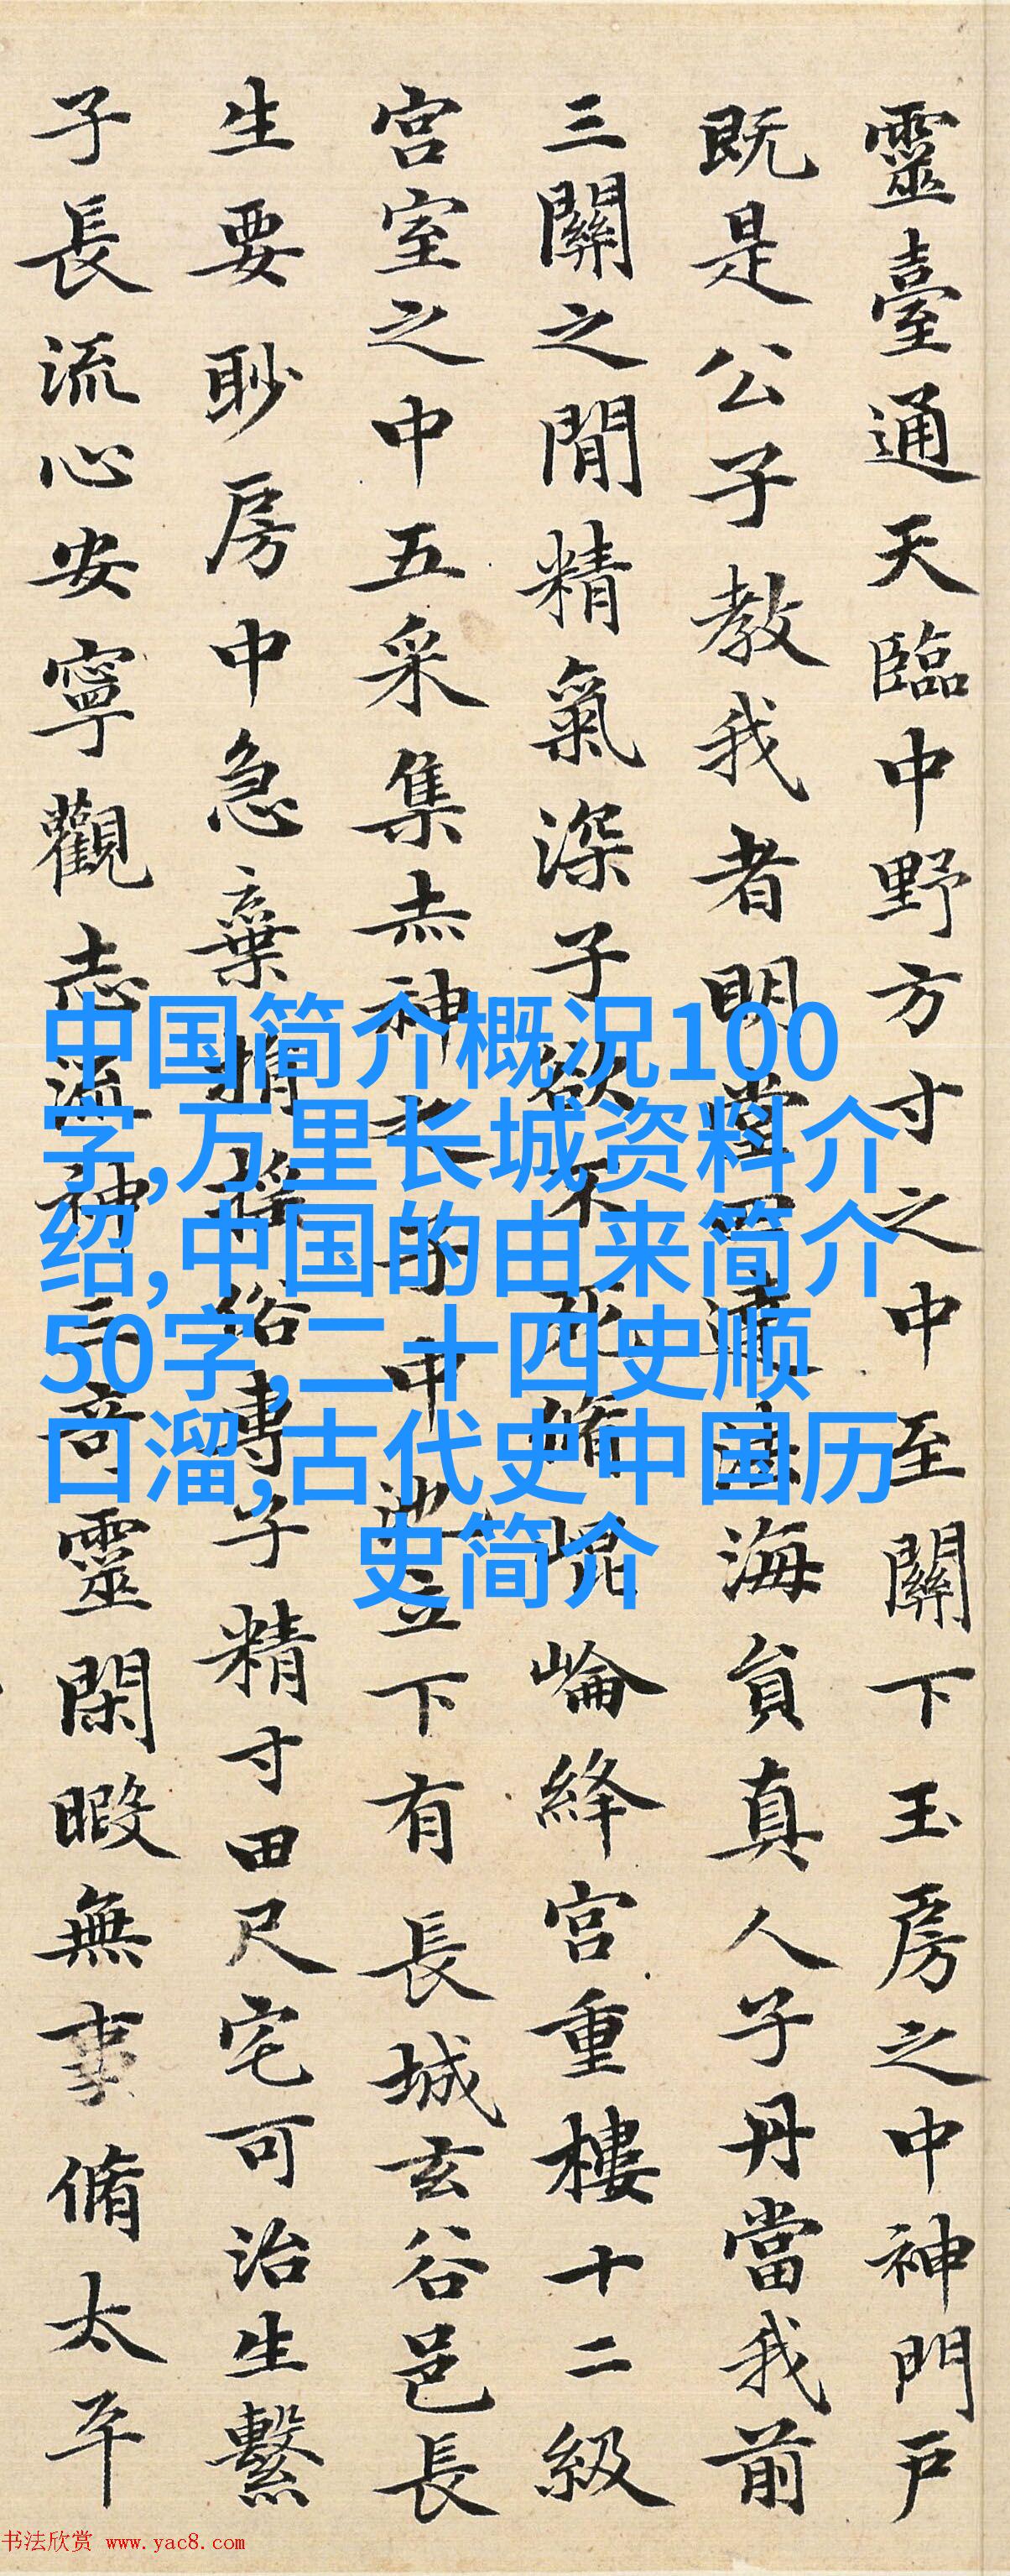 靈臺通天臨中野方寸之中至關下玉房之中神門戶
既是公子教我者明堂四達法海負真人子丹當我前
三關之間精氣深子欲不死脩崐崘絳宮重樓十二級
宮室之中五采集赤神之子中池立下有長城玄谷邑長
生要眇房中急棄捐搖俗專子精寸田尺宅可治生繫
子長流心安寧觀志流神三奇靈閑暇無事脩太平
中国简介概况100
字,万里长城资料介
绍,中国的由来简介
50字,二十四史顺
口溜,古代史中国历
史简介
书法欣赏 www.yac8.com